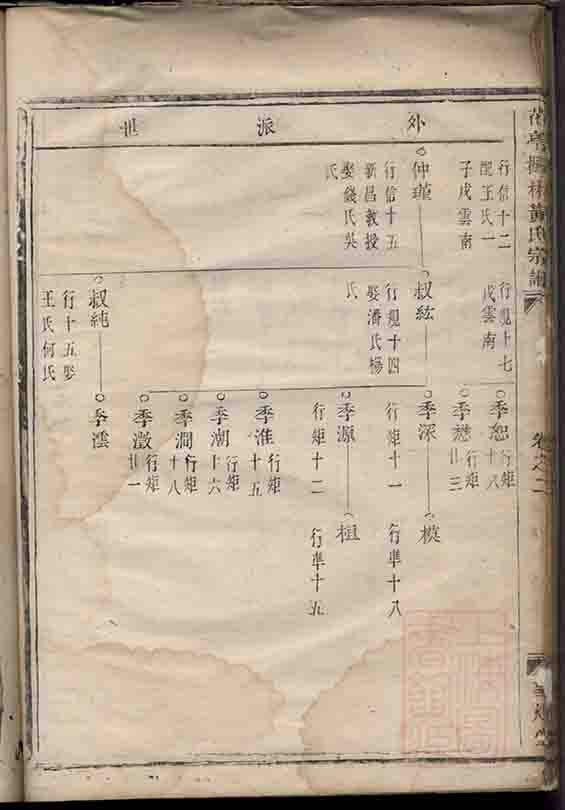 林黃氏宗譜
卷之二
外派世
行信十二
配王氏一
子戍雲南
仲瑾
行信十五
新昌教授
娶錢氏吳
氏
行規十七
戍雲南
叔紘
行規十四
娶潘氏楊
氏
叔純
行十五娶
王氏何氏
季恕
行矩
十八
季懋
行矩
廿三
季深
行矩十一
季源
行矩十二
季淮
行矩
十五
季潮
行矩
十六
季澗
行矩
十八
季澂
行矩
廿一
季澐
模
行準十八
桓
行準十五